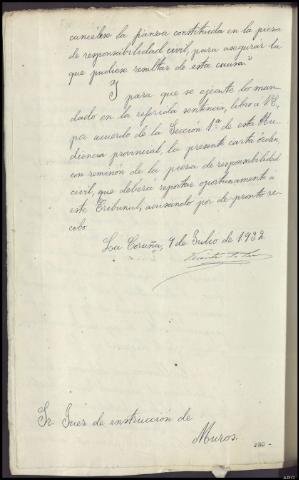 cancelese la fianza constituida en la pieza
de responsabilidad civil, para asegurar la
que pudiese resultar de esta causa."
Y para que se ejecute lo man-
dado en la referida sentencia, libro a V.S.,
por acuerdo de la Sección 1ª de esta Au-
diencia provincial, la presente carta órden,
con remisión de la pieza de responsabilidad
civil, que deberá reportar oportunamente á
este Tribunal, avisando por de pronto re-
cibo.
La Coruña, 9 de Julio de 1932
Sr. Juez de instrucción de
Muros.